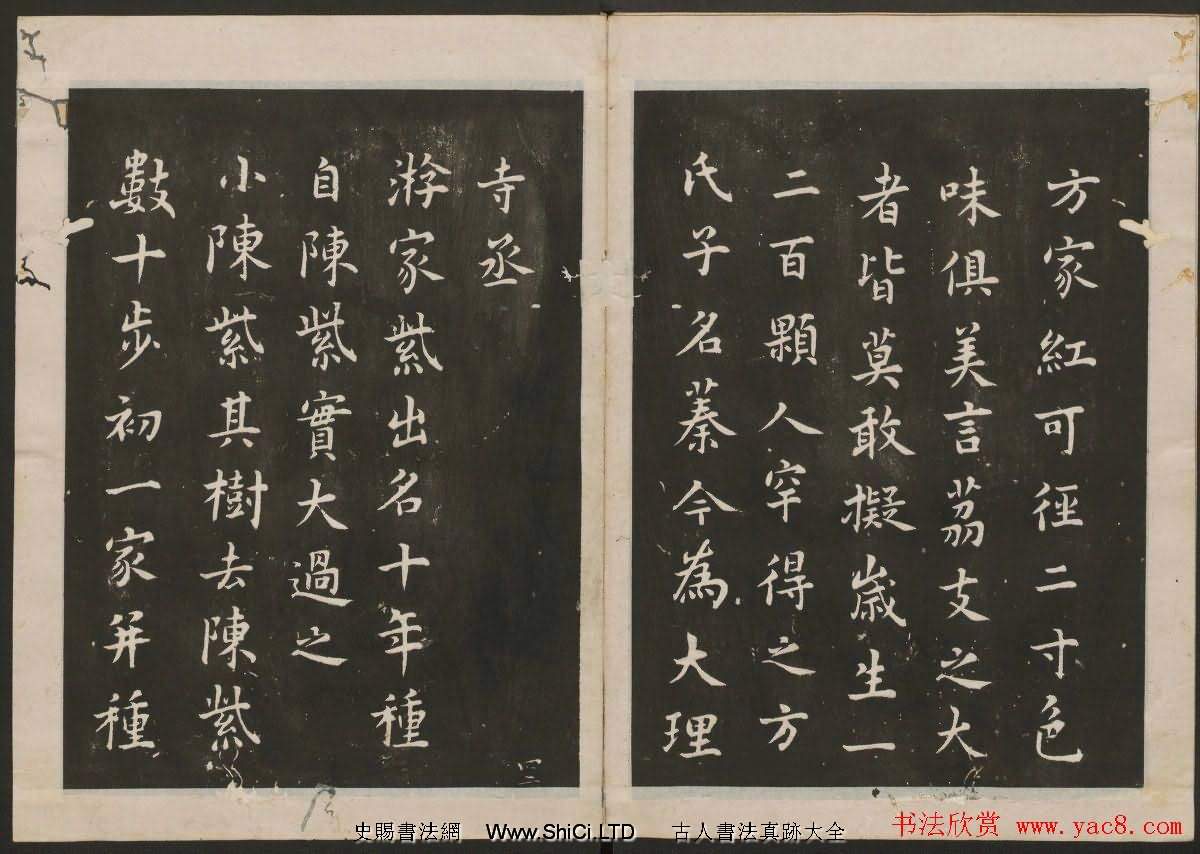 方家紅可徑二寸色
味俱美言茘支之大
者皆莫敢擬歲生一
二百顆人罕得之方
氏子名蓁今為大理
寺丞
游家紫出名十年種
自陳紫實大過之
小陳紫其樹去陳紫
數十步初一家并種
史賜書法網 Www.ShiCi.LTD 古人書法真跡大全
书法欣赏 www.yac8.com